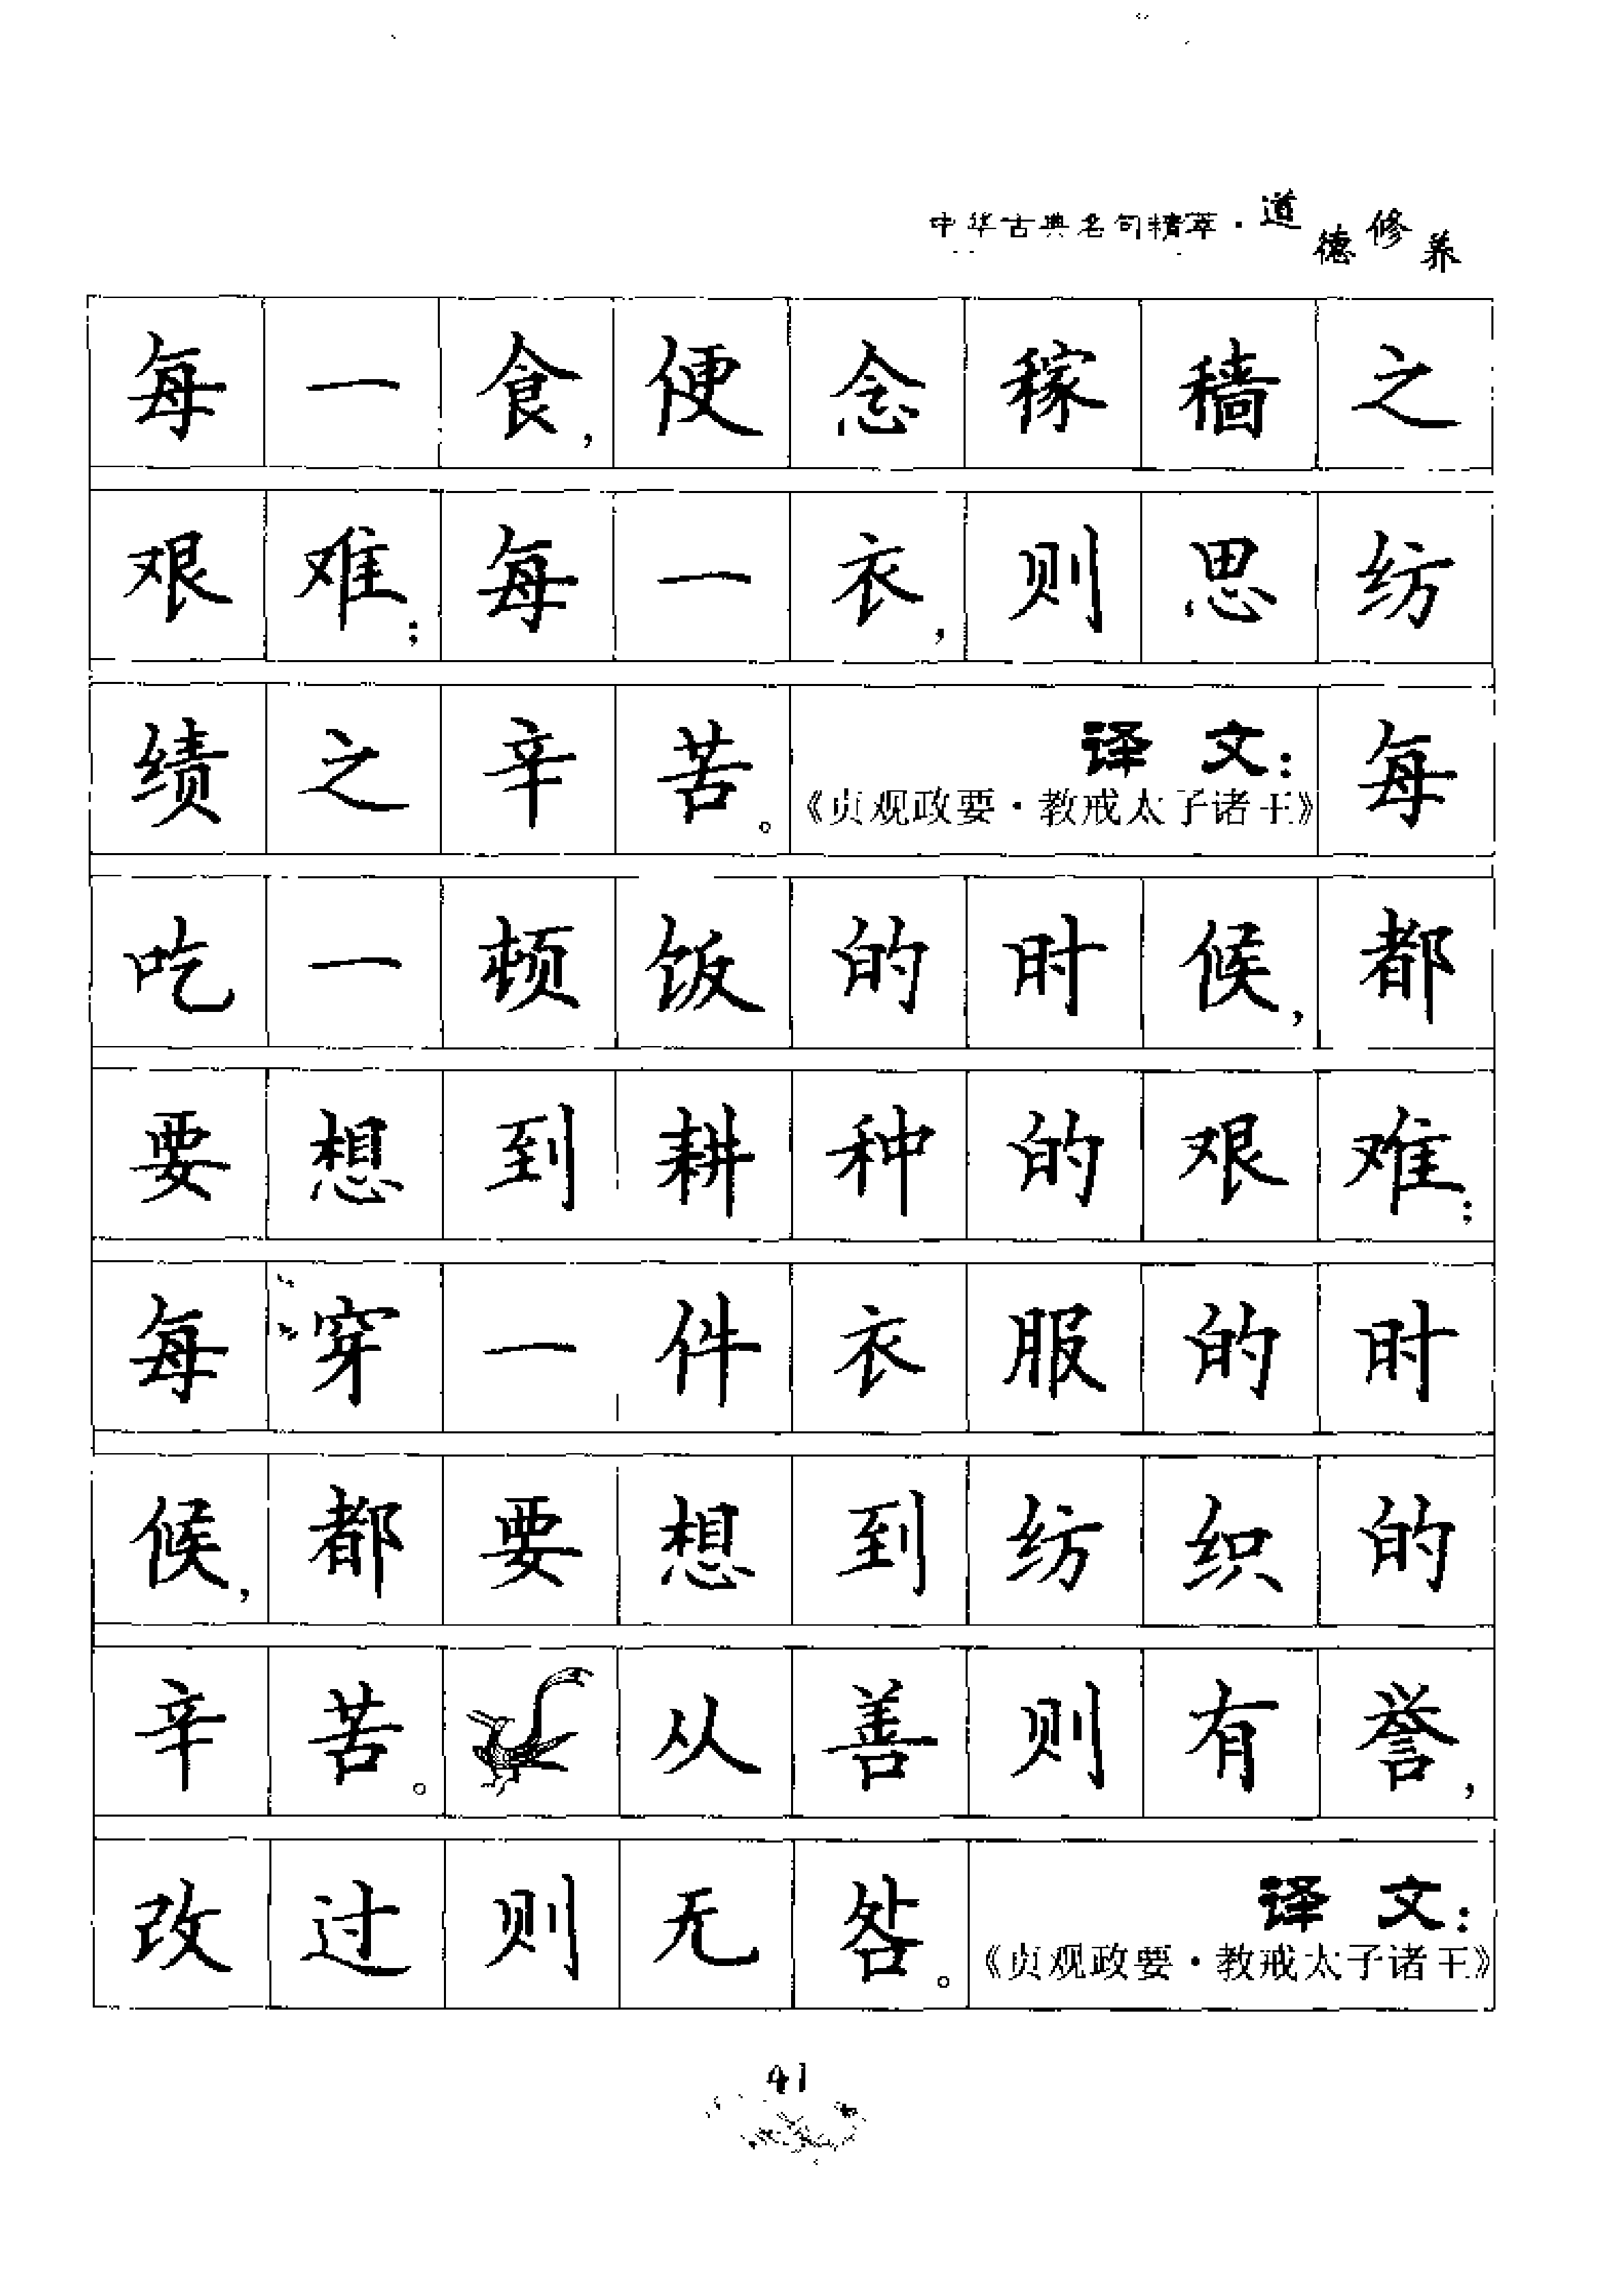 中华古典名句精萃·道德修养
每一食,便念稼穑之
艰难;每一衣,则思纺
绩之辛苦。 译文: 每
《贞观政要·教戒太子诸王》
吃一顿饭的时候,都
要想到耕种的艰难;
每穿一件衣服的时
候,都要想到纺织的
辛苦。 从善则有誉,
改过则无咎。 译文:
《贞观政要·教戒太子诸王》
41